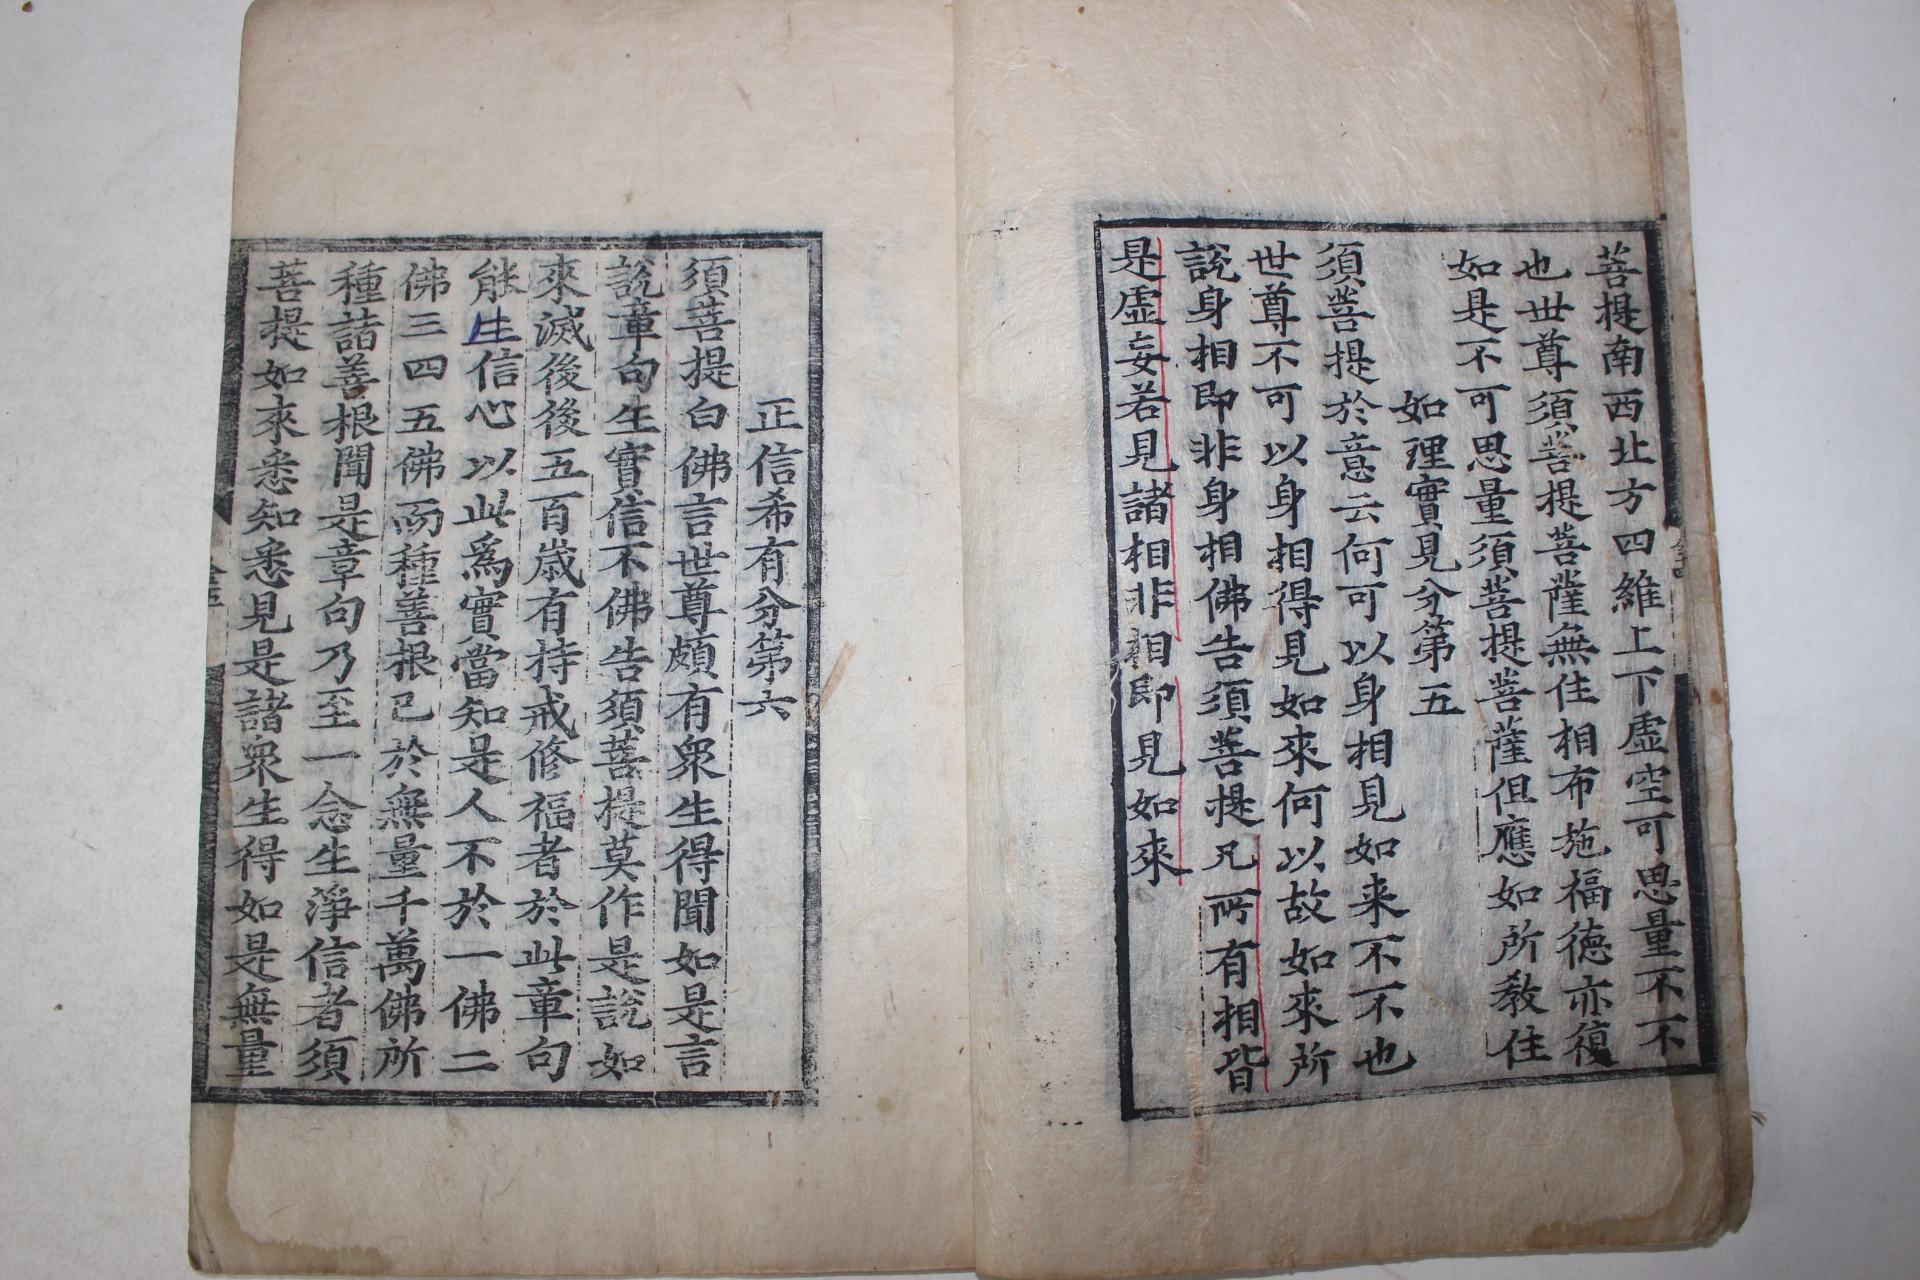 菩提南西北方四維上下虛空可思量不不
也世尊須菩提菩薩無住相布施福德亦復
如是不可思量須菩提菩薩但應如所教住
如理實見分第五
須菩提於意云何可以身相見如来不不也
世尊不可以身相得見如來何以故如來所
說身相即非身相佛告須菩提凡所有相皆
是虛妄若見諸相非相即見如來
正信希有分第六
須菩提白佛言世尊頗有衆生得聞如是言
說章句生實信不佛告須菩提莫作是說如
來滅後後五百歲有持戒修福者於此章句
能生信心以此爲實當知是人不於一佛二
佛三四五佛而種善根已於無量千萬佛所
種諸善根聞是章句乃至一念生淨信者須
菩提如來悉知悉見是諸衆生得如是無量